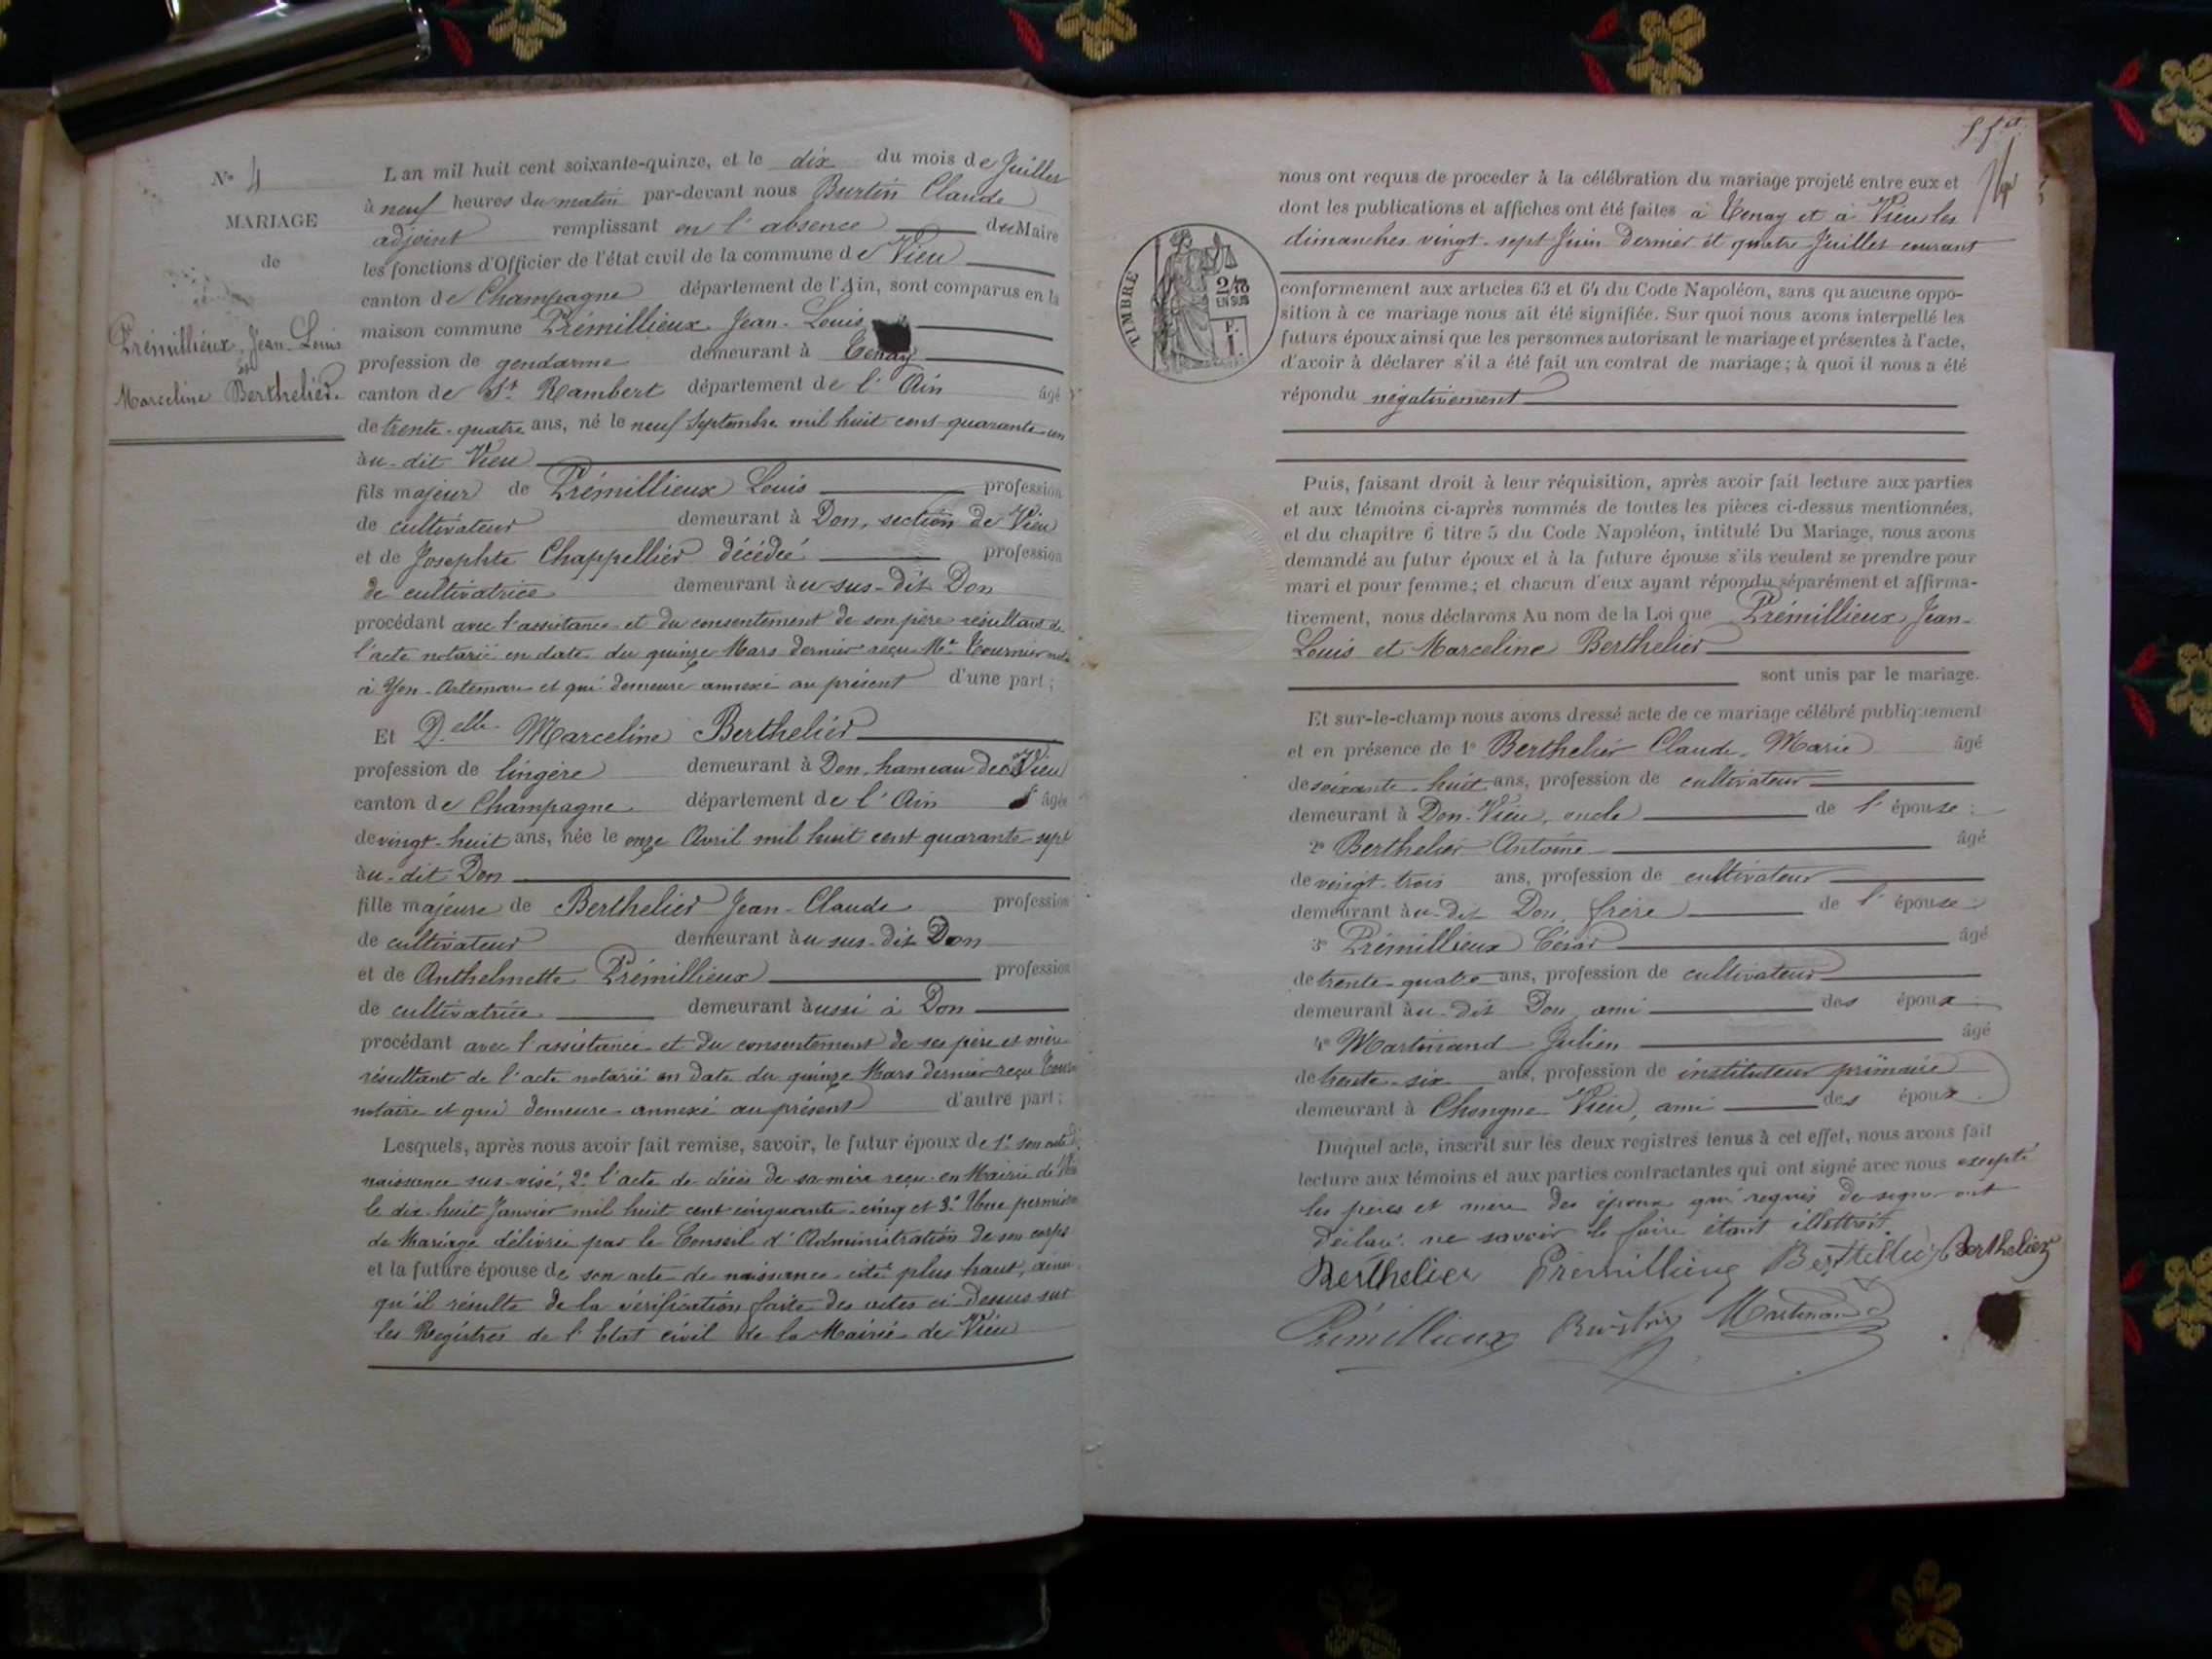 N° 4
MARIAGE
de
Prémillieux, Jean-Louis
et
Marceline Berthelier.
L'an mil huit cent soixante-quinze, et le dix du mois de Juillet
à neuf heures du matin par-devant nous Burtin Claude
adjoint remplissant en l'absence du Maire
les fonctions d'Officier de l'état civil de la commune de Vieu
canton de Champagne département de l'Ain, sont comparus en la
maison commune Prémillieux Jean-Louis
profession de gendarme demeurant à Tenay
canton de St Rambert département de l'Ain âgé
de trente-quatre ans, né le neuf Septembre mil huit cent quarante-un
au-dit Vieu
fils majeur de Prémillieux Louis profession
de cultivateur demeurant à Don, section de Vieu
et de Josephte Chappellier décédée profession
de cultivatrice demeurant au sus-dit Don
procédant avec l'assistance et du consentement de son père résultant de
l'acte notarié en date du quinze Mars dernier reçu Me Tournier
à Yon-Artemare et qui demeure annexé au présent d'une part;
Et Delle Marceline Berthelier
profession de lingère demeurant à Don, hameau de Vieu
canton de Champagne département de l'Ain âgée
de vingt-huit ans, née le onze Avril mil huit cent quarante-sept
au-dit Don
fille majeure de Berthelier Jean-Claude profession
de cultivateur demeurant au sus-dit Don
et de Anthelmette Prémillieux profession
de cultivatrice demeurant aussi à Don
procédant avec l'assistance et du consentement de ses père et mère
résultant de l'acte notarié en date du quinze Mars dernier reçu
notaire et qui demeure annexé au présent d'autre part;
Lesquels, après nous avoir fait remise, savoir, le futur époux de 1° son acte de
naissance sus-visé, 2° l'acte de décès de sa mère reçu en Mairie de Vieu
le dix-huit Janvier mil huit cent cinquante-cinq et 3° Une permission
de Mariage délivrée par le Conseil d'Administration de son corps
et la future épouse de son acte de naissance cité plus haut, ainsi
qu'il résulte de la vérification faite des actes ci-dessus sur
les Registres de l'Etat civil de la Mairie de Vieu
nous ont requis de proceder à la célébration du mariage projeté entre eux et
dont les publications et affiches ont été faites à Tenay et à Vieu les
dimanches vingt-sept Juin dernier et quatre Juillet courant
TIMBRE
2/10
EN SUS
F.
1.
conformement aux articles 63 et 64 du Code Napoléon, sans qu'aucune oppo-
sition à ce mariage nous ait été signifiée. Sur quoi nous avons interpellé les
futurs époux ainsi que les personnes autorisant le mariage et présentes à l'acte,
d'avoir à déclarer s'il a été fait un contrat de mariage; à quoi il nous a été
répondu négativement
Puis, faisant droit à leur réquisition, après avoir fait lecture aux parties
et aux témoins ci-après nommés de toutes les pièces ci-dessus mentionnées,
et du chapitre 6 titre 5 du Code Napoléon, intitulé Du Mariage, nous avons
demandé au futur époux et à la future épouse s'ils veulent se prendre pour
mari et pour femme; et chacun d'eux ayant répondu séparément et affirma-
tivement, nous déclarons Au nom de la Loi que Prémillieux Jean-
Louis et Marceline Berthelier
sont unis par le mariage.
Et sur-le-champ nous avons dressé acte de ce mariage célébré publiquement
et en présence de 1° Berthelier Claude-Marie âgé
de soixante-huit ans, profession de cultivateur
demeurant à Don-Vieu, oncle de l'épouse;
2° Berthelier Antoine âgé
de vingt-trois ans, profession de cultivateur
demeurant au-dit Don, frère de l'épouse;
3° Prémillieux César âgé
de trente-quatre ans, profession de cultivateur
demeurant au-dit Don, ami des époux;
4° Martinand Julien âgé
de trente-six ans, profession de instituteur primaire
demeurant à Chongne Vieu, ami des époux.
Duquel acte, inscrit sur les deux registres tenus à cet effet, nous avons fait
lecture aux témoins et aux parties contractantes qui ont signé avec nous excepté
les pères et mère des époux qui requis de signer ont
déclaré ne savoir le faire étant illettrés
Berthelier Premillieux Berthelier Berthelier
Prémillieux Burtin Martinand